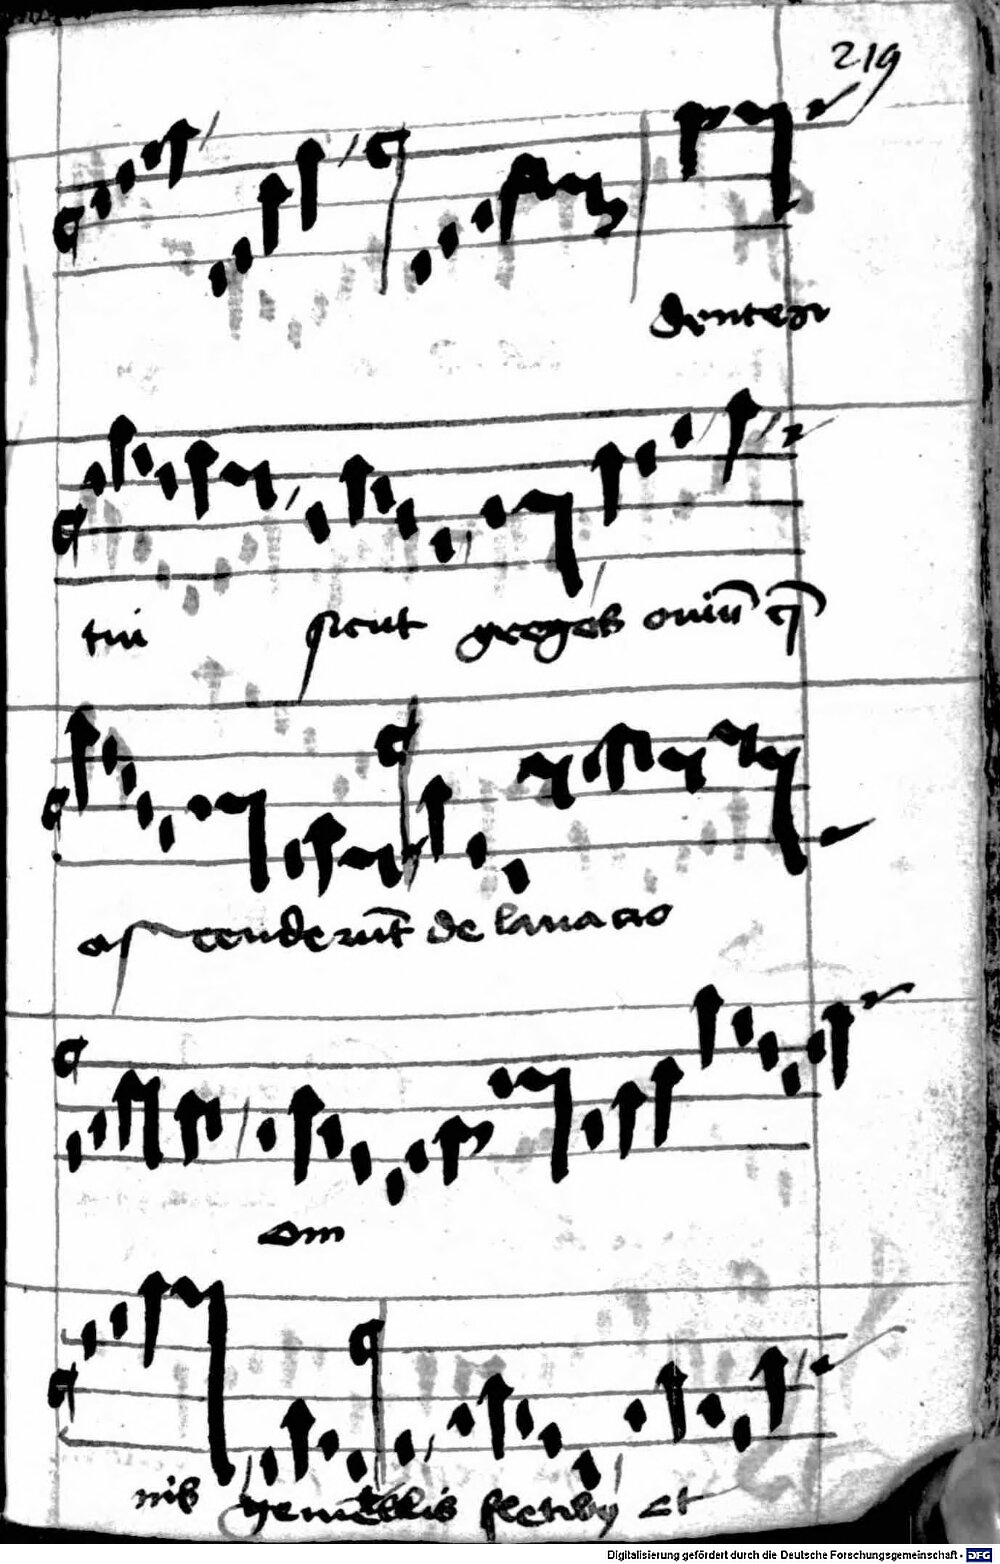 219
dentes
tui sicut greges oviū q̄
ascenderūt de lavacro
om
nib gemellis fletiby et
Digitalisierung gefördert durch die Deutsche Forschungsgemeinschaft - DFG